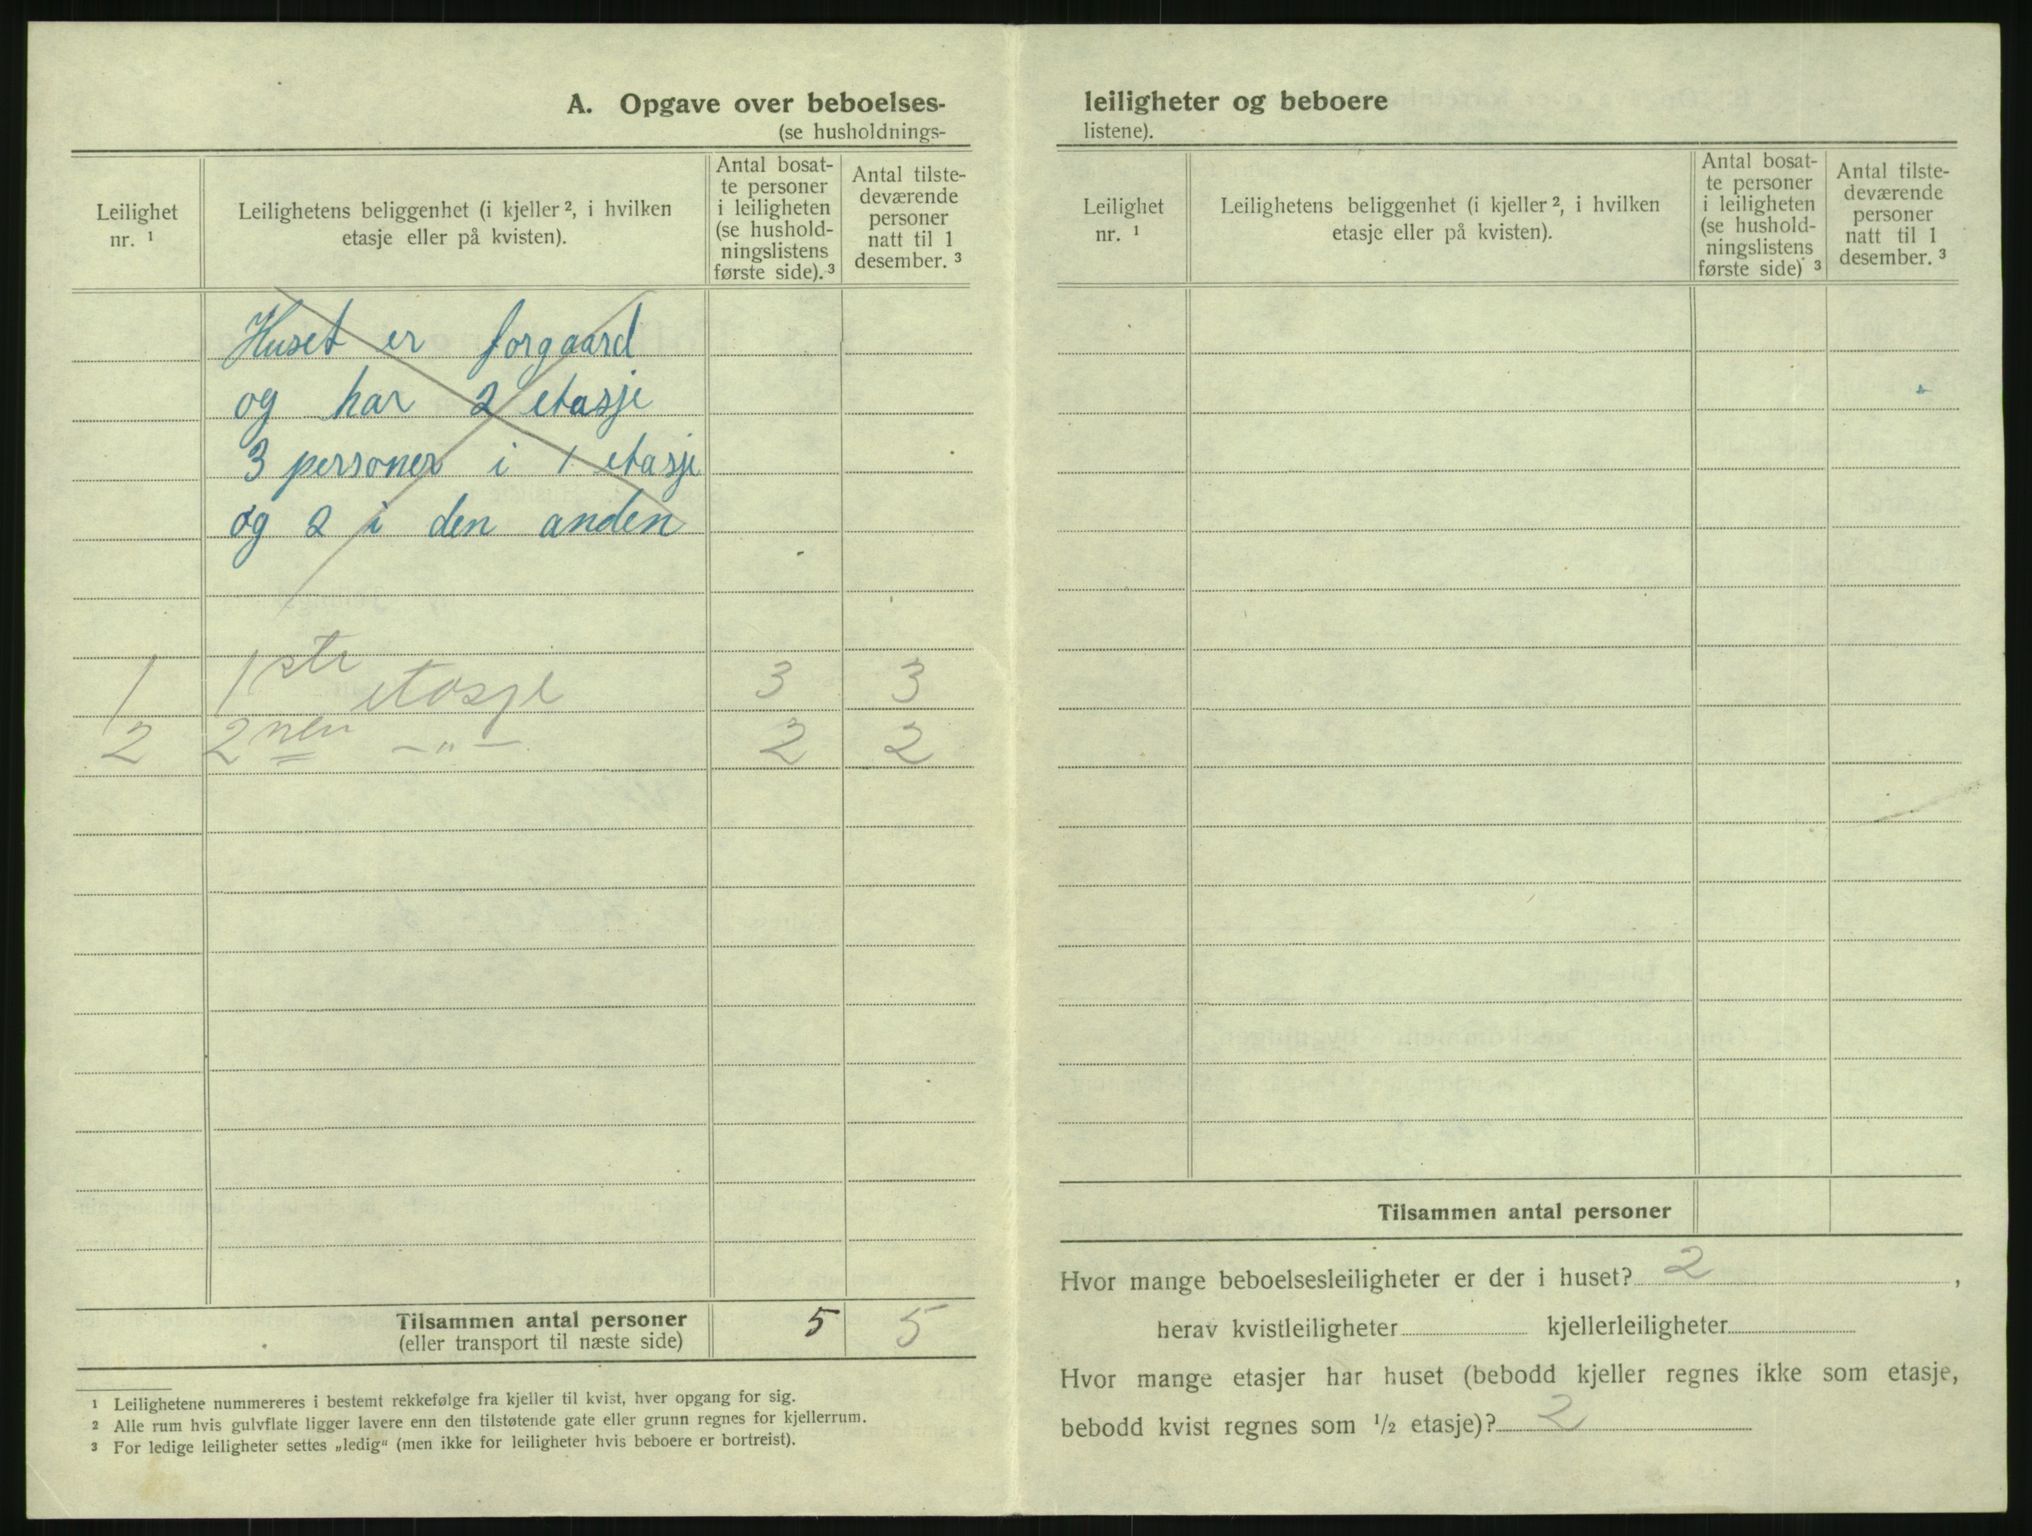 A. Opgave over beboelses-
(se husholdnings-
Leilighet
nr. ¹
Leilighetens beliggenhet (i kjeller ², i hvilken
etasje eller på kvisten).
Antal bosat-
te personer
i leiligheten
(se hushold-
ningslistens
første side). ³
Antal tilste-
deværende
personer
natt til 1
desember. ³
Huset er forgaard
og har 2 etasje
3 personer i 1 etasje
og 2 i den anden
1 1ste etasje 3 3
2 2nen —„— 2 2
Tilsammen antal personer 5 5
(eller transport til næste side)
¹ Leilighetene nummereres i bestemt rekkefølge fra kjeller til kvist, hver opgang for sig.
² Alle rum hvis gulvflate ligger lavere enn den tilstøtende gate eller grunn regnes for kjellerrum.
³ For ledige leiligheter settes „ledig“ (men ikke for leiligheter hvis beboere er bortreist).
leiligheter og beboere
listene).
Leilighet
nr. ¹
Leilighetens beliggenhet (i kjeller ², i hvilken
etasje eller på kvisten).
Antal bosat-
te personer
i leiligheten
(se hushold-
ningslistens
første side) ³
Antal tilste-
deværende
personer
natt til 1
desember. ³
Tilsammen antal personer
Hvor mange beboelsesleiligheter er der i huset? 2 ,
herav kvistleiligheter kjellerleiligheter
Hvor mange etasjer har huset (bebodd kjeller regnes ikke som etasje,
bebodd kvist regnes som ½ etasje)? 2